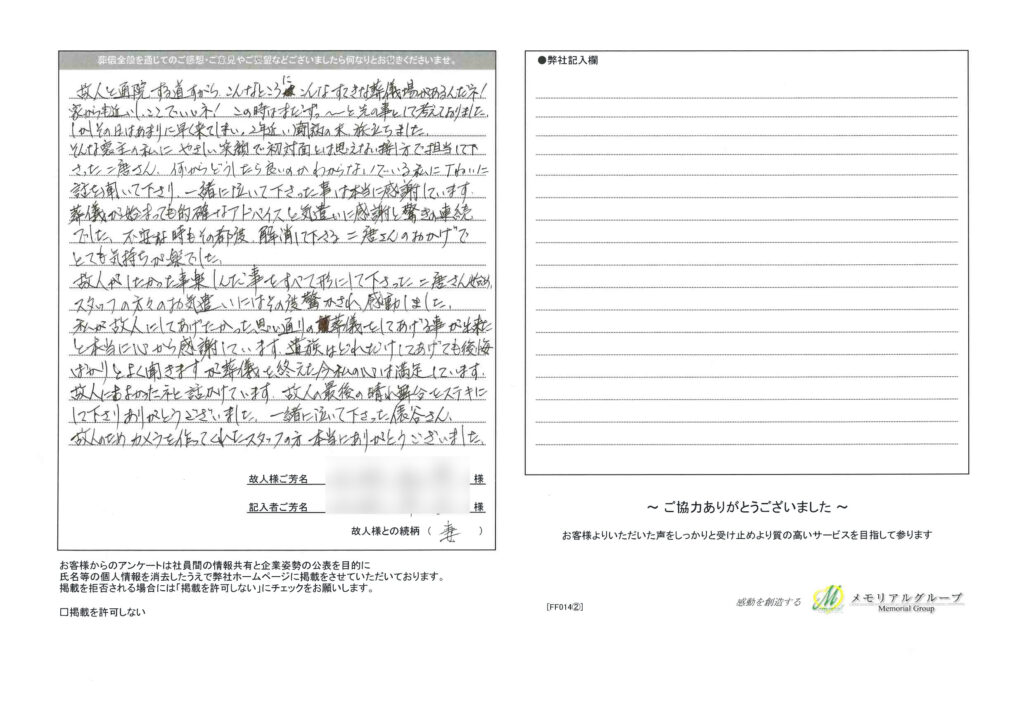 葬儀全般を通じてのご感想・ご意見やご要望などございましたら何なりとお書きくださいませ。
故人と通院する道すがら、こんなところにこんなすてきな葬儀場があるんだネ!
家からも近いしここでいいネ! この時はまだずっ〜と先の事として考えておりました。
しかしその日はあまりに早く来てしまい、2年近い闘病の末、旅立ちました。
そんな喪主の私に やさしい笑顔で初対面とは思えない接し方で担当して下
さった二唐さん、何からどうしたら良いのかわからないでいる私に ていねいに
話を聞いて下さり、一緒に泣いて下さった事は本当に感謝しています。
葬儀が始まっても的確なアドバイスと気遣いに感謝と驚きの連続
でした。不安な時もその都度、解消して下さる 二唐さんのおかげで
とても気持ちが楽でした。
故人がしたかった事楽しんだ事をすべて形にして下さった 二唐さん始め、
スタッフの方々のお気遣いにはその後驚かされ、感動しました。
私が故人にしてあげたかった思い通りの葬儀をしてあげる事が出来た
と本当に心から感謝しています。遺族はどれだけしてあげても後悔
ばかりとよく聞きますが葬儀を終えた今私の心は満足しています。
故人によかったネと話かけています。故人の最後の晴れ舞台をステキに
して下さりありがとうございました。一緒に泣いて下さった俵谷さん、
故人のため カメラを作ってくれたスタッフの方 本当にありがとうございました。
故人様ご芳名 様
記入者ご芳名 様
故人様との続柄 ( 妻 )
お客様からのアンケートは社員間の情報共有と企業姿勢の公表を目的に
氏名等の個人情報を消去したうえで弊社ホームページに掲載をさせていただいております。
掲載を拒否される場合には「掲載を許可しない」にチェックをお願いします。
□掲載を許可しない
●弊社記入欄
〜 ご協力ありがとうございました 〜
お客様よりいただいた声をしっかりと受け止めより質の高いサービスを目指して参ります
[FF014②]
感動を創造する
メモリアルグループ
Memorial Group